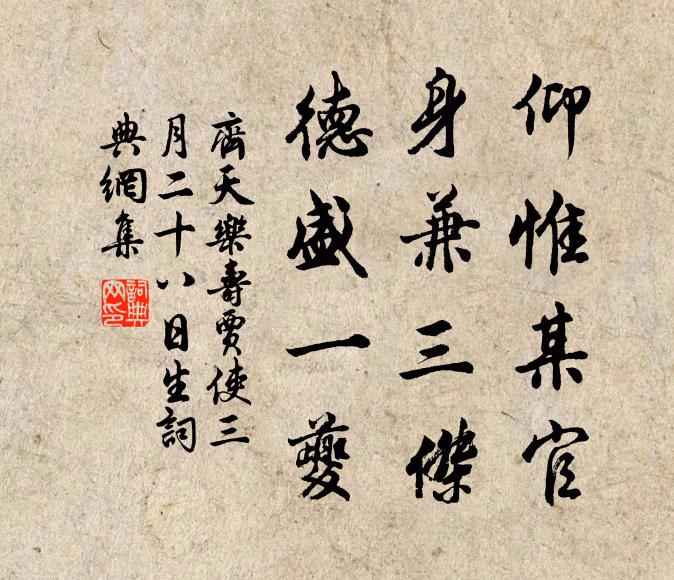 仰惟某官
身兼三傑
德盛一夔
齊天樂壽賈使三
月二十八日生詞
典網集
詞典網印